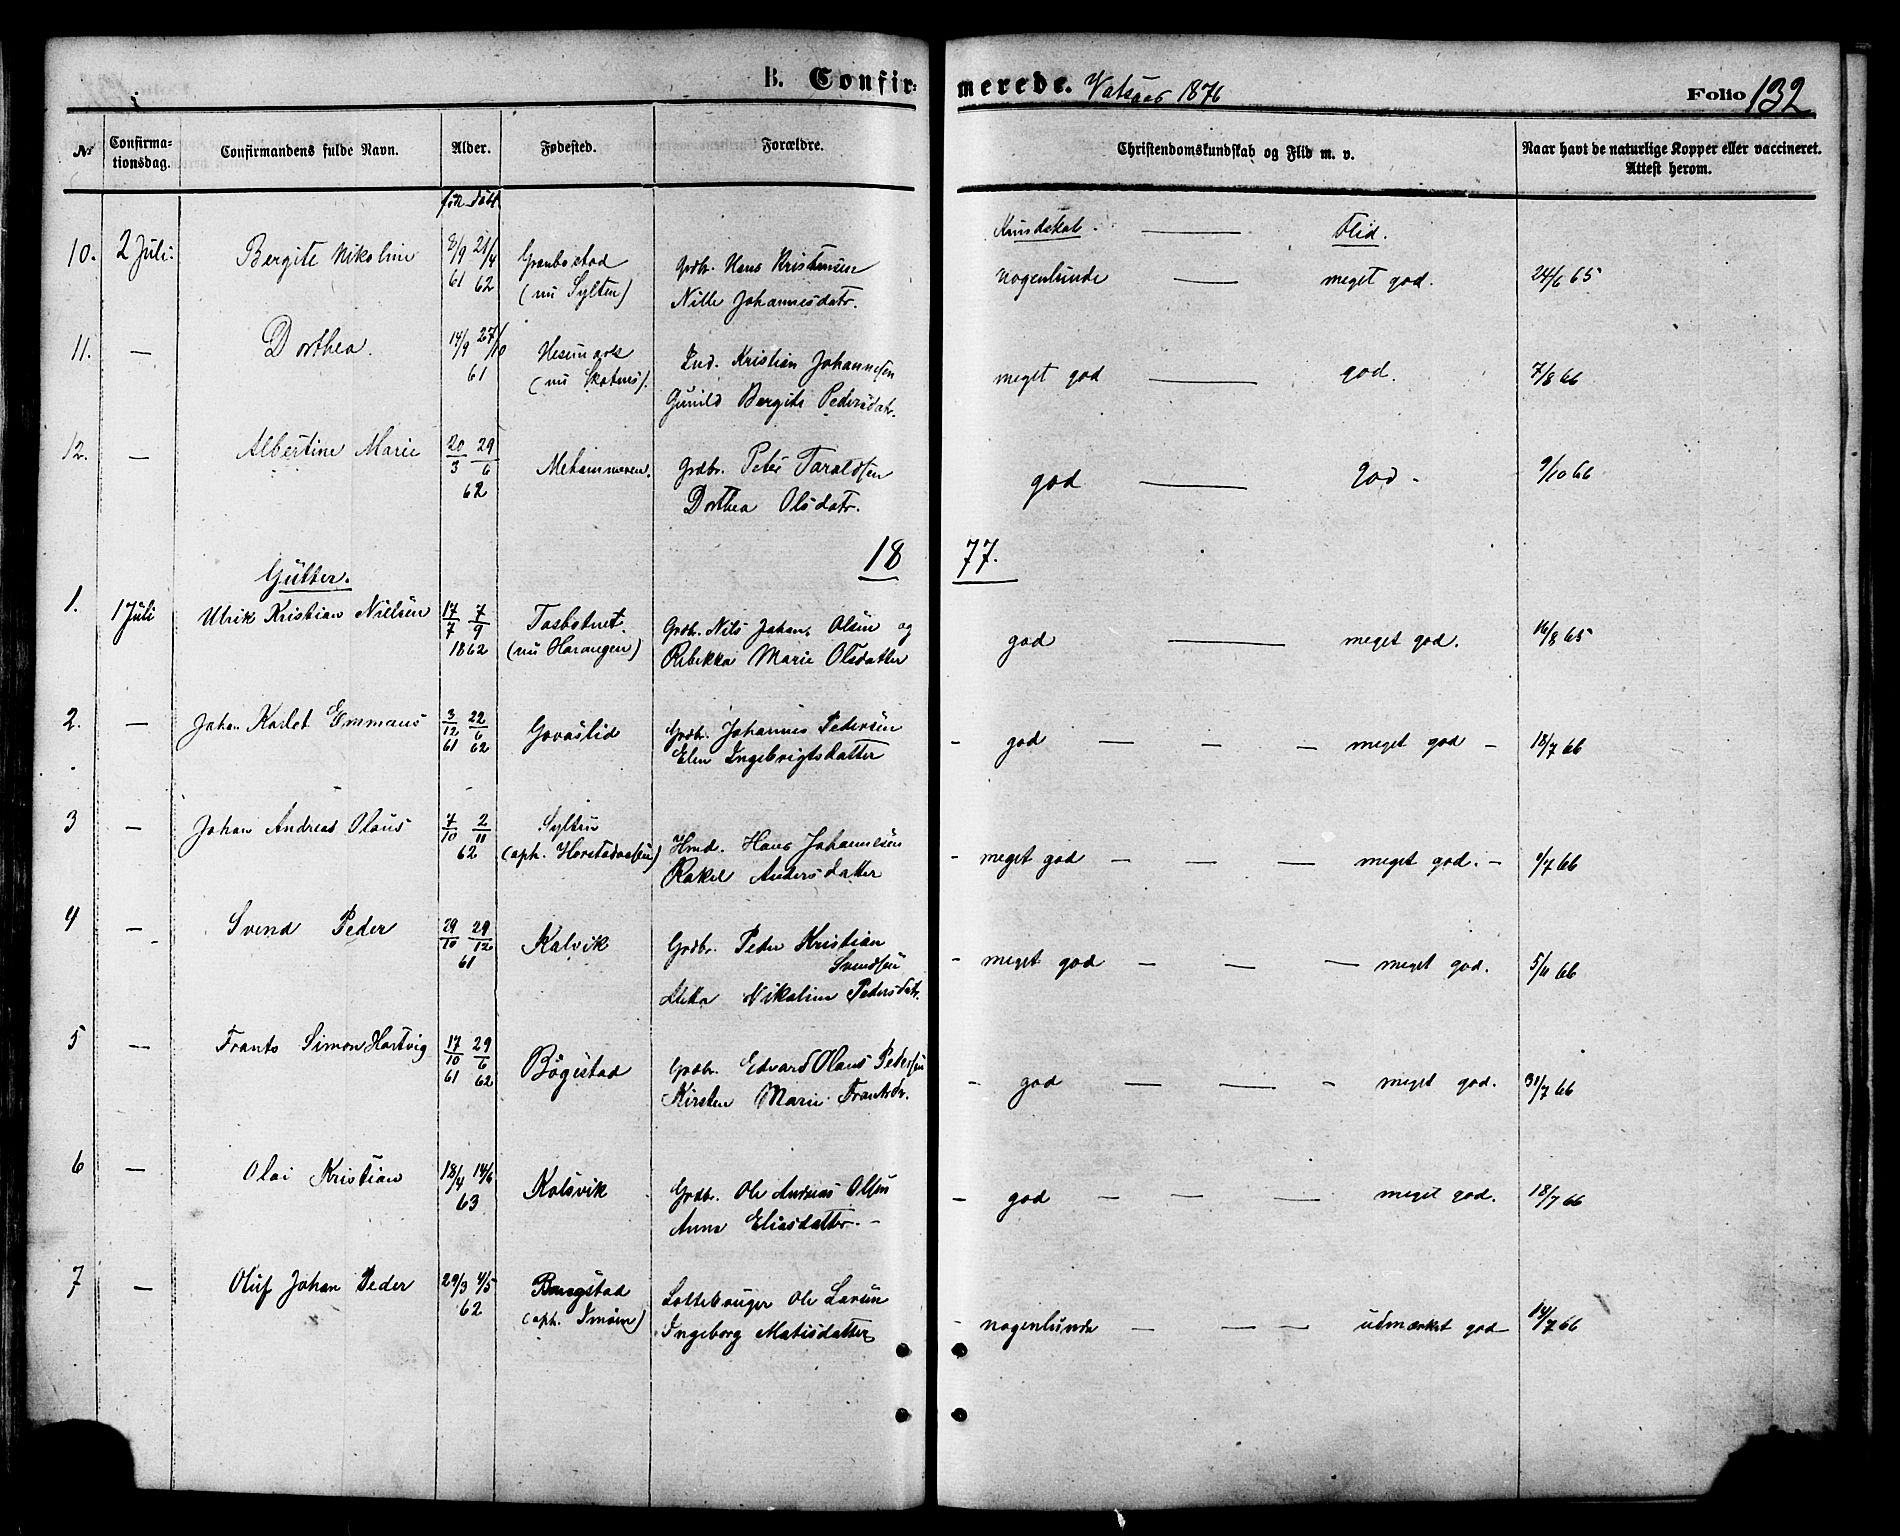 B. Confirmerede. 1876 Folio 132
No. Confirmationsdag. Confirmandens fulde Navn. Alder. Fødested. Forældre. Christendomskundskab og Flid m. v. Naar havt de naturlige Kopper eller vaccineret. Attest herom.
Kundskab. — Flid.
10. 2 Juli. Bergite Nikoline 8/9 61 21/4 62 (nu Sylten) Grdbr. Hans Kristensen
Nille Johannesdatr. nogenlunde — meget god. 24/6 65
11. — Dorthea. 14/9 27/10 61 Ind. Kristian Johannesen
Gunild Bergite Pedersdatr. meget god — god. 7/8 66
12. — Albertine Marie 20/3 29/6 62 Grdbr. Peter Taraldsen
Dorthea Olsdatr. god — god. 9/10 66
18 77.
Gutter.
1. 1 Juli Ulrik Kristian Nielsen 17/7 7/9 1862 Grdbr. Nils Johan Olsen og
Rebekka Marie Olsdatter god — meget god. 16/8 65
2. — Johan Emmaus 3/12 61 22/6 62 Govaslid Grdbr. Johannes Pedersen
Elen Ingebrigtsdatter - god — - — meget god - 18/7 66
3 — Johan Andreas Olaus 7/10 2/11 62 Sylten
Hmd. Hans Johannesen
Rakel Andersdatter - meget god — — — meget god. - 1/7 66
4 — Svend Peder 29/10 29/12 61 Kalvik Grdbr. Peder Kristian
Svendsen
Nikoline Pedersdatr. - meget god — — — meget god. 5/11 66
5 — Frants Simon Hartvig 17/10 61 29/6 62 Bøgestad Grdbr. Edvard Olaus Pedersen
Kirsten Marie Frantsdr. - god — — - meget god. 31/7 66
6 — Olai Kristian 18/4 14/6 63 Kolsvik Grdbr. Ole Andreas Olsen
Anne Eliasdatter. - - god — — — meget god. 18/7 66
7 — Oluf Johan Peder 29/3 4/5 62 Ole Larsen
Ingeborg Matisdatter - nogenlunde — — — udmærket god 14/7 66